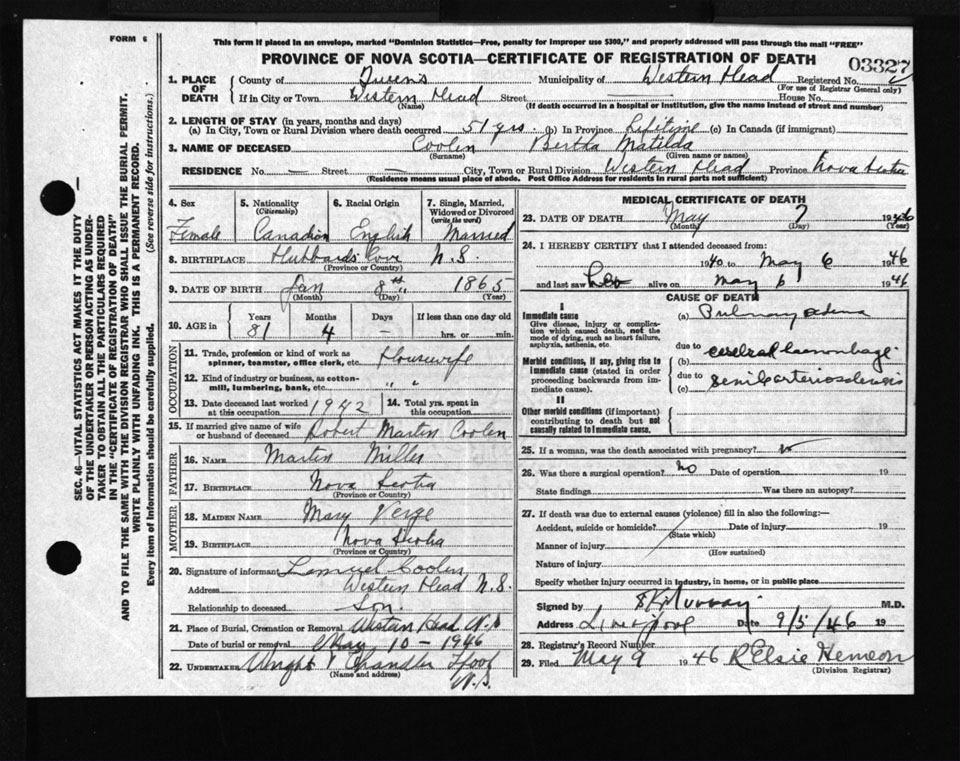 FORM 6
This form if placed in an envelope, marked "Dominion Statistics—Free, penalty for improper use $300," and properly addressed will pass through the mail "FREE"
PROVINCE OF NOVA SCOTIA—CERTIFICATE OF REGISTRATION OF DEATH
03327
1. PLACE OF DEATH
County of Queen's Municipality of Western Head Registered No.
(For use of Registrar General only)
If in City or Town Western Head Street House No.
(Name) (If death occurred in a hospital or institution, give the name instead of street and number)
2. LENGTH OF STAY (in years, months and days)
(a) In City, Town or Rural Division where death occurred 51 yrs (b) In Province Lifetime (c) In Canada (if immigrant)
3. NAME OF DECEASED Coolen Bertha Matilda
(Surname) (Given name or names)
RESIDENCE No. — Street — City, Town or Rural Division Western Head Province Nova Scotia
(Residence means usual place of abode. Post Office Address for residents in rural parts not sufficient)
4. Sex Female
5. Nationality (Citizenship) Canadian
6. Racial Origin English
7. Single, Married, Widowed or Divorced (write the word) Married
8. BIRTHPLACE Hubbards Cove N.S.
(Province or Country)
9. DATE OF BIRTH Jan 8th 1865
(Month) (Day) (Year)
10. AGE in Years Months Days If less than one day old
81 4 — hrs. or min.
OCCUPATION
11. Trade, profession or kind of work as spinner, teamster, office clerk, etc. Housewife
12. Kind of industry or business, as cotton-mill, lumbering, bank, etc. " "
13. Date deceased last worked at this occupation 1942
14. Total yrs. spent in this occupation
15. If married give name of wife or husband of deceased Robert Martin Coolen
FATHER
16. NAME Martin Miller
17. BIRTHPLACE Nova Scotia
(Province or Country)
MOTHER
18. MAIDEN NAME Mary Verge
19. BIRTHPLACE Nova Scotia
(Province or Country)
20. Signature of informant Lemuel Coolen
Address Western Head N.S.
Relationship to deceased Son.
21. Place of Burial, Cremation or Removal Western Head N.S
Date of burial or removal May 10 – 1946
22. UNDERTAKER Wright & Chandler L'pool
(Name and address) N.S.
MEDICAL CERTIFICATE OF DEATH
23. DATE OF DEATH May 7 1946
(Month) (Day) (Year)
24. I HEREBY CERTIFY that I attended deceased from:
1940 to May 6 1946
and last saw her alive on May 6 1946
CAUSE OF DEATH
I
Immediate cause
Give disease, injury or complication which caused death, not the mode of dying, such as heart failure, asphyxia, asthenia, etc.
(a) Pulmonary edema
due to
Morbid conditions, if any, giving rise to immediate cause (stated in order proceeding backwards from immediate cause).
(b) cerebral haemorrhage
due to
(c) senile arteriosclerosis
II
Other morbid conditions (if important) contributing to death but not causally related to immediate cause.
25. If a woman, was the death associated with pregnancy?
26. Was there a surgical operation? no Date of operation 19
State findings Was there an autopsy?
27. If death was due to external causes (violence) fill in also the following:—
Accident, suicide or homicide? Date of injury 19
(State which)
Manner of injury
(How sustained)
Nature of injury
Specify whether injury occurred in industry, in home, or in public place
Signed by Murray M.D.
Address Liverpool Date 9/5/46 19
28. Registrar's Record Number
29. Filed May 9 1946 R Elsie Hemeon
(Division Registrar)
SEC. 46—VITAL STATISTICS ACT MAKES IT THE DUTY
OF THE UNDERTAKER OR PERSON ACTING AS UNDER-
TAKER TO OBTAIN ALL THE PARTICULARS REQUIRED
IN THE "CERTIFICATE OF REGISTRATION OF DEATH"
AND TO FILE THE SAME WITH THE DIVISION REGISTRAR WHO SHALL ISSUE THE BURIAL PERMIT.
WRITE PLAINLY WITH UNFADING INK. THIS IS A PERMANENT RECORD.
Every item of Information should be carefully supplied. (See reverse side for instructions.)